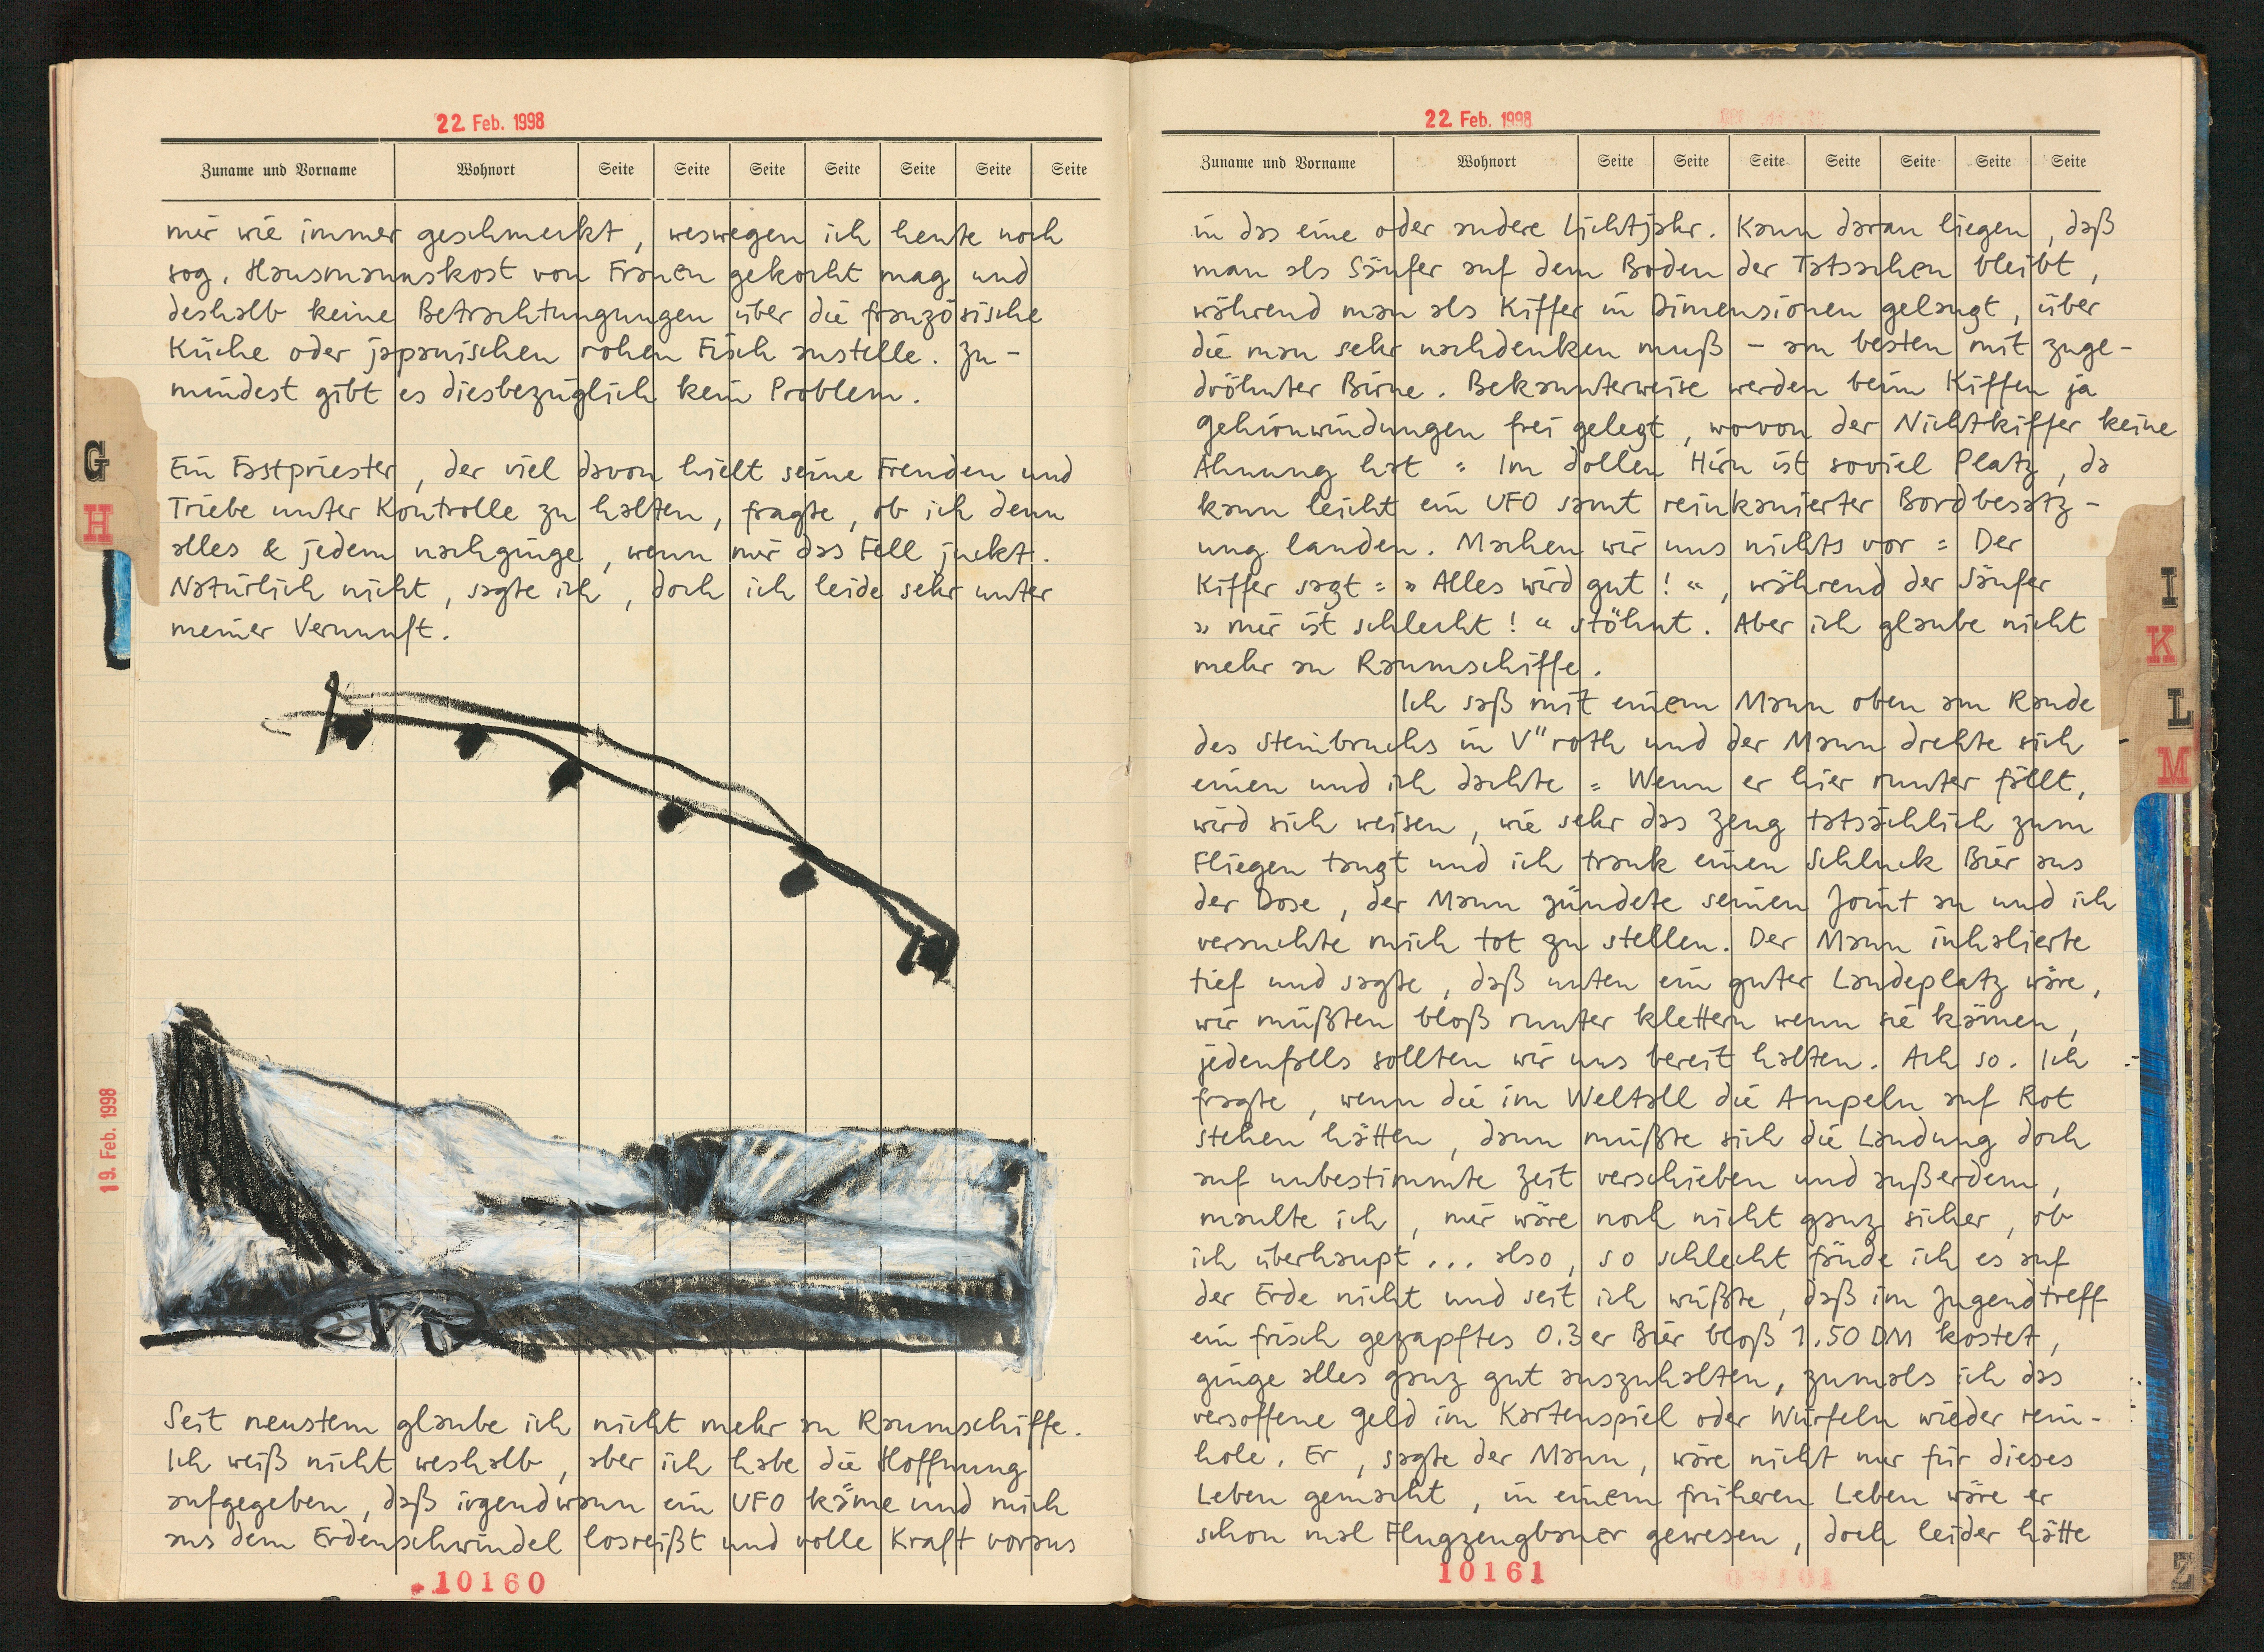 22 Feb. 1998
Zuname und Vorname Wohnort Seite Seite Seite Seite Seite Seite Seite
mir wie immer geschmeckt, weswegen ich heute noch
sog. Hausmannskost von Frauen gekocht mag und
deshalb keine Betrachtungungen über die französische
Küche oder japanischen rohen Fisch anstelle. Zu-
mindest gibt es diesbezüglich kein Problem.
Ein Fastpriester, der viel davon hielt seine Freuden und
Triebe unter Kontrolle zu halten, fragte, ob ich denn
alles & jedem nachginge, wenn mir das Fell juckt.
Natürlich nicht, sagte ich, doch ich leide sehr unter
meiner Vernunft.
Seit neustem glaube ich nicht mehr an Raumschiffe.
Ich weiß nicht weshalb, aber ich habe die Hoffnung
aufgegeben, daß irgendwann ein UFO käme und mich
aus dem Erdenschwindel losreißt und volle Kraft voraus
10160
G
H
19. Feb. 1998
22 Feb. 1998
Zuname und Vorname Wohnort Seite Seite Seite Seite Seite Seite Seite
in das eine oder andere Lichtjahr. Kann daran liegen, daß
man als Säufer auf dem Boden der Tatsachen bleibt,
während man als Kiffer in Dimensionen gelangt, über
die man sehr nachdenken muß – am besten mit zuge-
dröhnter Birne. Bekannterweise werden beim Kiffen ja
Gehirnwindungen frei gelegt, wovon der Nichtkiffer keine
Ahnung hat: Im dollen Hirn ist soviel Platz, da
kann leicht ein UFO samt reinkanierter Bordbesatz-
ung landen. Machen wir uns nichts vor: Der
Kiffer sagt: »Alles wird gut!«, während der Säufer
»mir ist schlecht!« stöhnt. Aber ich glaube nicht
mehr an Raumschiffe.
Ich saß mit einem Mann oben am Rande
des Steinbruchs in V"roth und der Mann drehte sich
einen und ich dachte: Wenn er hier runter fällt,
wird sich weisen, wie sehr das Zeug tatsächlich zum
Fliegen taugt und ich trank einen Schluck Bier aus
der Dose, der Mann zündete seinen Joint an und ich
versuchte mich tot zu stellen. Der Mann inhalierte
tief und sagte, daß unten ein guter Landeplatz wäre,
wir müßten bloß runter klettern wenn sie kämen,
jedenfalls sollten wir uns bereit halten. Ach so. Ich
fragte, wenn die im Weltall die Ampeln auf Rot
stehen hätten, dann müßte sich die Landung doch
auf unbestimmte Zeit verschieben und außerdem,
maulte ich, mir wäre noch nicht ganz sicher, ob
ich überhaupt... also, so schlecht fände ich es auf
der Erde nicht und seit ich wüßte, daß im Jugendtreff
ein frisch gezapftes 0.3er Bier bloß 1.50 DM kostet,
ginge alles ganz gut auszuhalten, zumals ich das
versoffene Geld im Kartenspiel oder Würfeln wieder rein-
hole. Er, sagte der Mann, wäre nicht nur für dieses
Leben gemacht, in einem früheren Leben wäre er
schon mal Flugzeugbauer gewesen, doch leider hätte
10161
I
K
L
M
Z